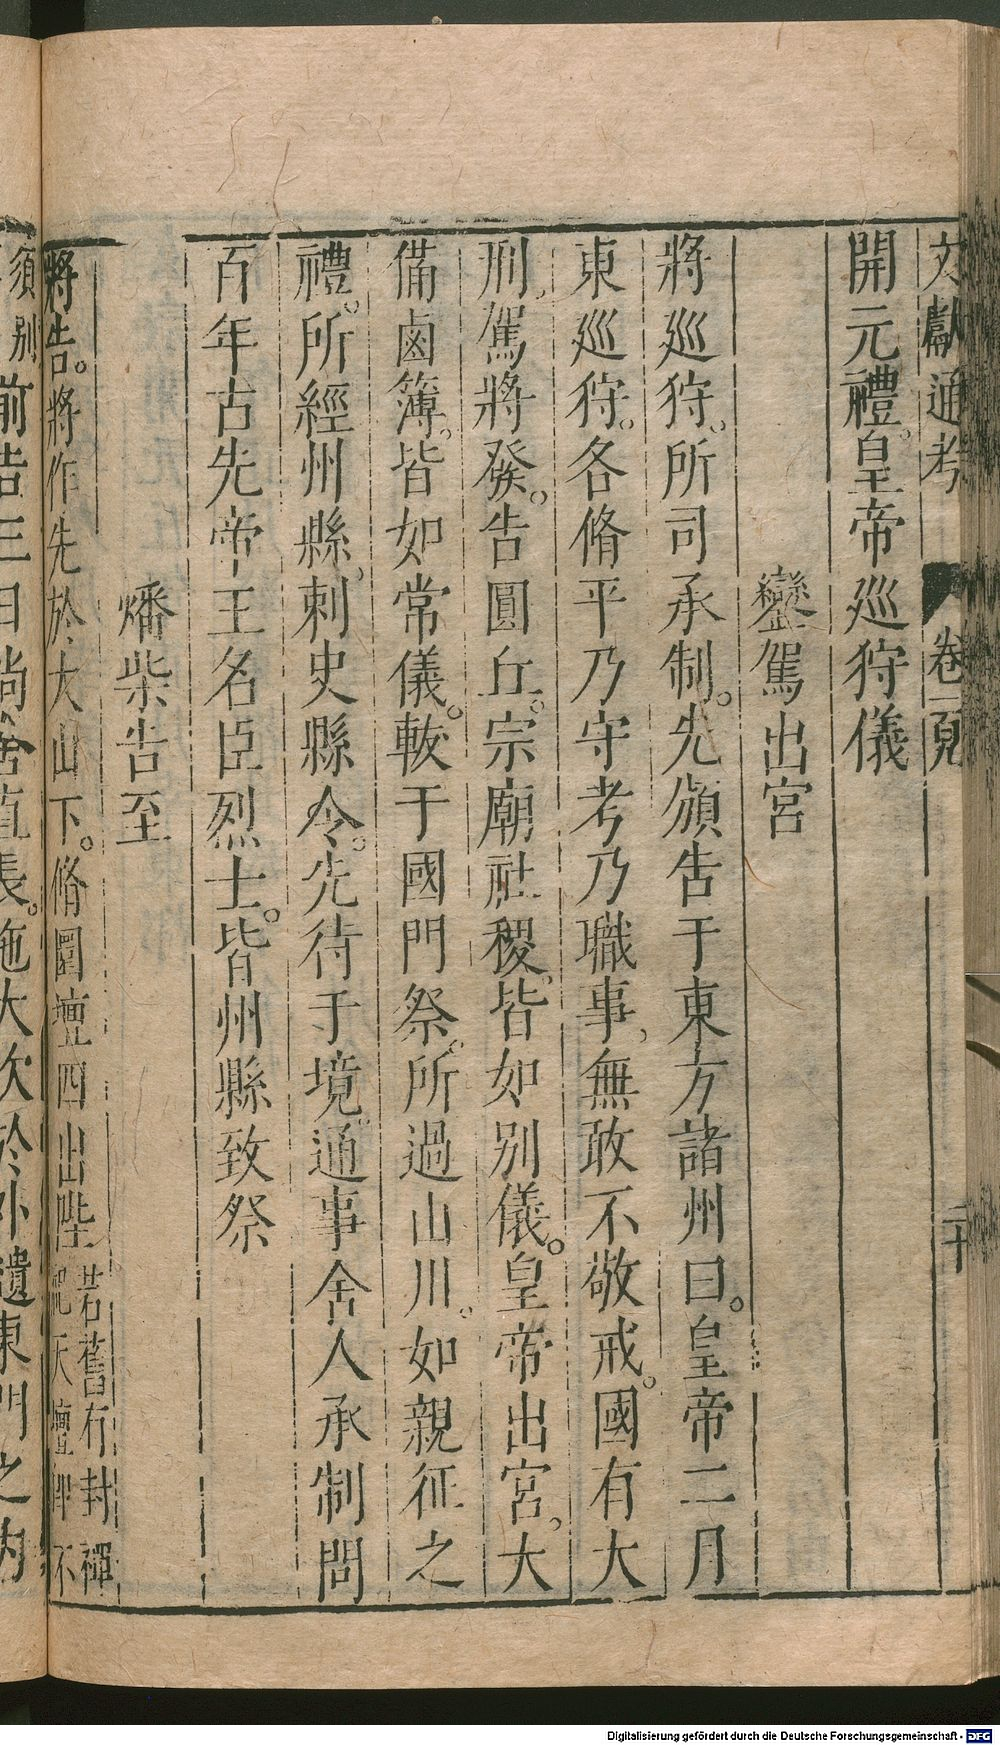 文獻通考 卷一百九 二十
開元禮。皇帝巡狩儀
鑾駕出宮
將巡狩。所司承制。先頒告于東方諸州曰。皇帝二月
東巡狩。各脩平乃守考乃職事、無敢不敬戒。國有大
刑、駕將發。告圓丘。宗廟社稷。皆如別儀。皇帝出宮、大
備鹵簿。皆如常儀。軷于國門祭。所過山川。如親征之
禮。所經州縣、刺史縣令。先待于境。通事舍人承制問
百年古先帝王名臣烈士。皆州縣致祭
燔柴告至
將告。將作先於太山下。脩圜壇四出陛 若舊有封禪祀天壇即不
須別 前告三日尚舍直長。施大次於外壝東門之內
Digitalisierung gefördert durch die Deutsche Forschungsgemeinschaft - DFG